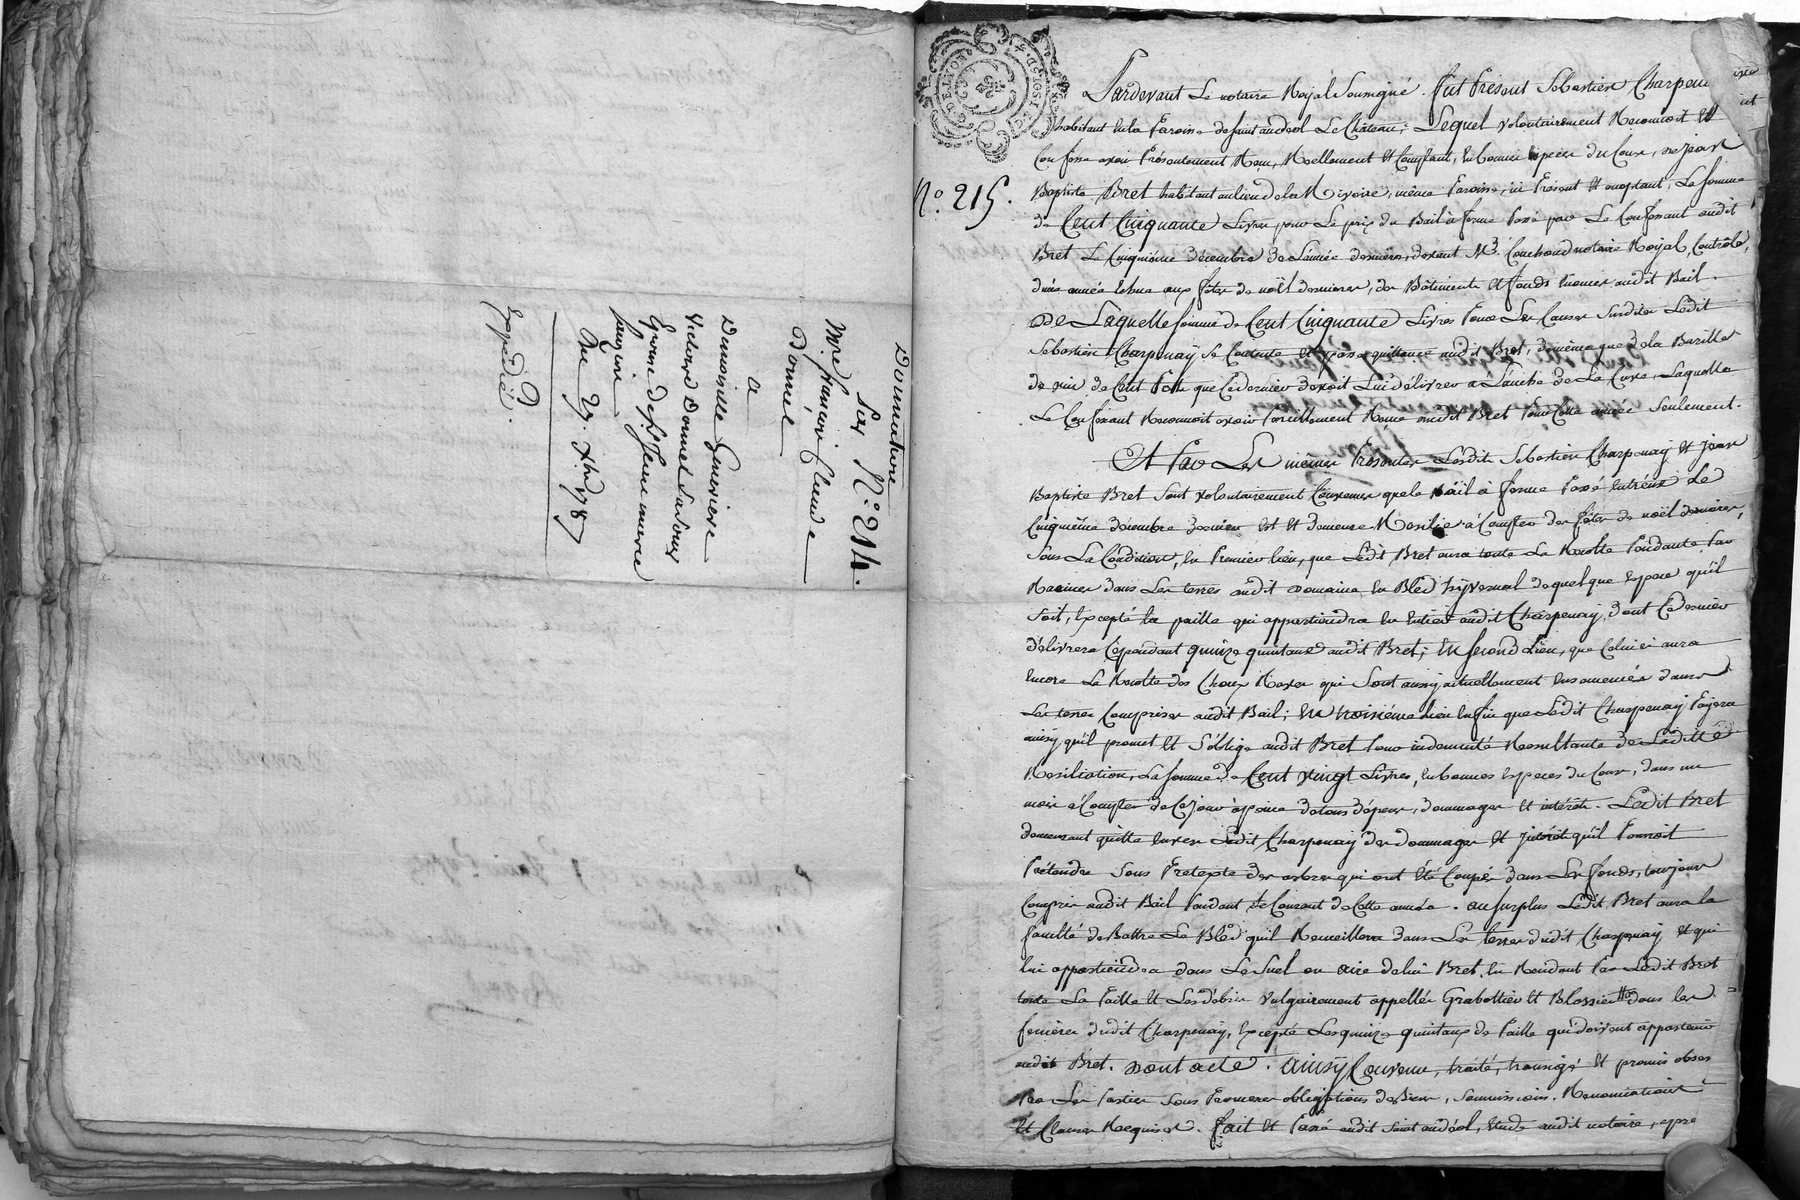 Donnature
Sur N.° 214.
mre françois Claude
Donnel
a
Demoiselle Genevieve
Victoire Donnel Sadoux
Epouse de
Du 27. xbre 1787
Expedié.
N.° 215.
Pardevant Le notaire Royal Soussigné. fut Présent Sebastien Charpenay
habitant en la Paroisse de Saint andéol Le Château; Lequel volontairement Reconnoit et
Confesse avoir Présentement Reçu, Réellement et Comptant, en bonnes espèces du Cours, de jean
Baptiste Bret habitant au lieu de la Rivoire, même Paroisse, ici Présent et acceptant, La somme
de Cent Cinquante Livres pour Le prix du Bail à ferme Passé par Le Confessant audit
Bret Le Cinquième décembre de L'année dernière, devant Me. Couchoud notaire Royal, Contrôlé,
d'une année échue aux fêtes de noël dernieres, des Bâtiments et fonds énoncés audit Bail.
De Laquelle somme de Cent Cinquante Livres Pour Les Causes Susdites Ledit
Sebastien Charpenay se Contente et passe quittance audit Bret, de même que de la Barille
de vin de Cent Pots que Ce dernier devoit Lui délivrer à L'anche de La Cuve, Laquelle
Le Confessant Reconnoit avoir Pareillement Reçue audit Bret Pour Cette année Seulement.
Et Par Les mêmes Présentes Lesdits Sebastien Charpenay et Jean
Baptiste Bret Sont volontairement Convenus que le Bail à ferme Passé entr'eux Le
Cinquième décembre dernier est et demeure Resilié à Compter des fêtes de noël dernieres,
Sous La Condition, en Premier lieu, que Ledit Bret aura toute La Recolte Pendante Par
Racines dans Les terres dudit Domaine en Bled hÿvernal de quelque espece qu'il
Soit, Excepté la paille qui appartiendra en Entier audit Charpenay, dont Ce dernier
délivrera Cependant quinze quintaux audit Bret; En second Lieu, que Celui ci aura
Encore La Recolte des Choux Raves qui Sont aussy actuellement Ensemencés dans
Les terres Comprises audit Bail; En troisième lieu Enfin que Ledit Charpenay Payera
ainsy qu'il promet et S'oblige audit Bret Pour indemnité Resultante de Ladite
Resiliation, La somme de Cent vingt Livres, en bonnes Especes du Cours, dans un
mois à Compter de Ce jour à peine de tous dépens, dommages et intérêts. Ledit Bret
demeurant quitte Envers Ledit Charpenay des dommages et Intérêts qu'il Pourroit
Prétendre Sous Prétexte des arbres qui ont été Coupés dans Les fonds, toujours
Compris audit Bail Pendant Le Courant de Cette année. au surplus Ledit Bret aura la
faculté de Battre Le Bled qu'il Recueillera dans Les terres dudit Charpenay et qui
lui appartiendra dans Le Suel ou aire de lui Bret, En Rendant Par Ledit Bret
toute La Paille et Les débris vulgairement appellés Grabottier et Blossier dans les
fenieres dudit Charpenay, Excepté Les quinze quintaux de Paille qui doivent appartenir
audit Bret. Dont acte. ainsy Convenu, traité, transigé et promis observer
Par Les Parties Sous Peines obligations de Biens, Soumissions, Renonciations
et Clauses Requises. fait et Passé audit Saint andéol, étude dudit notaire, apre